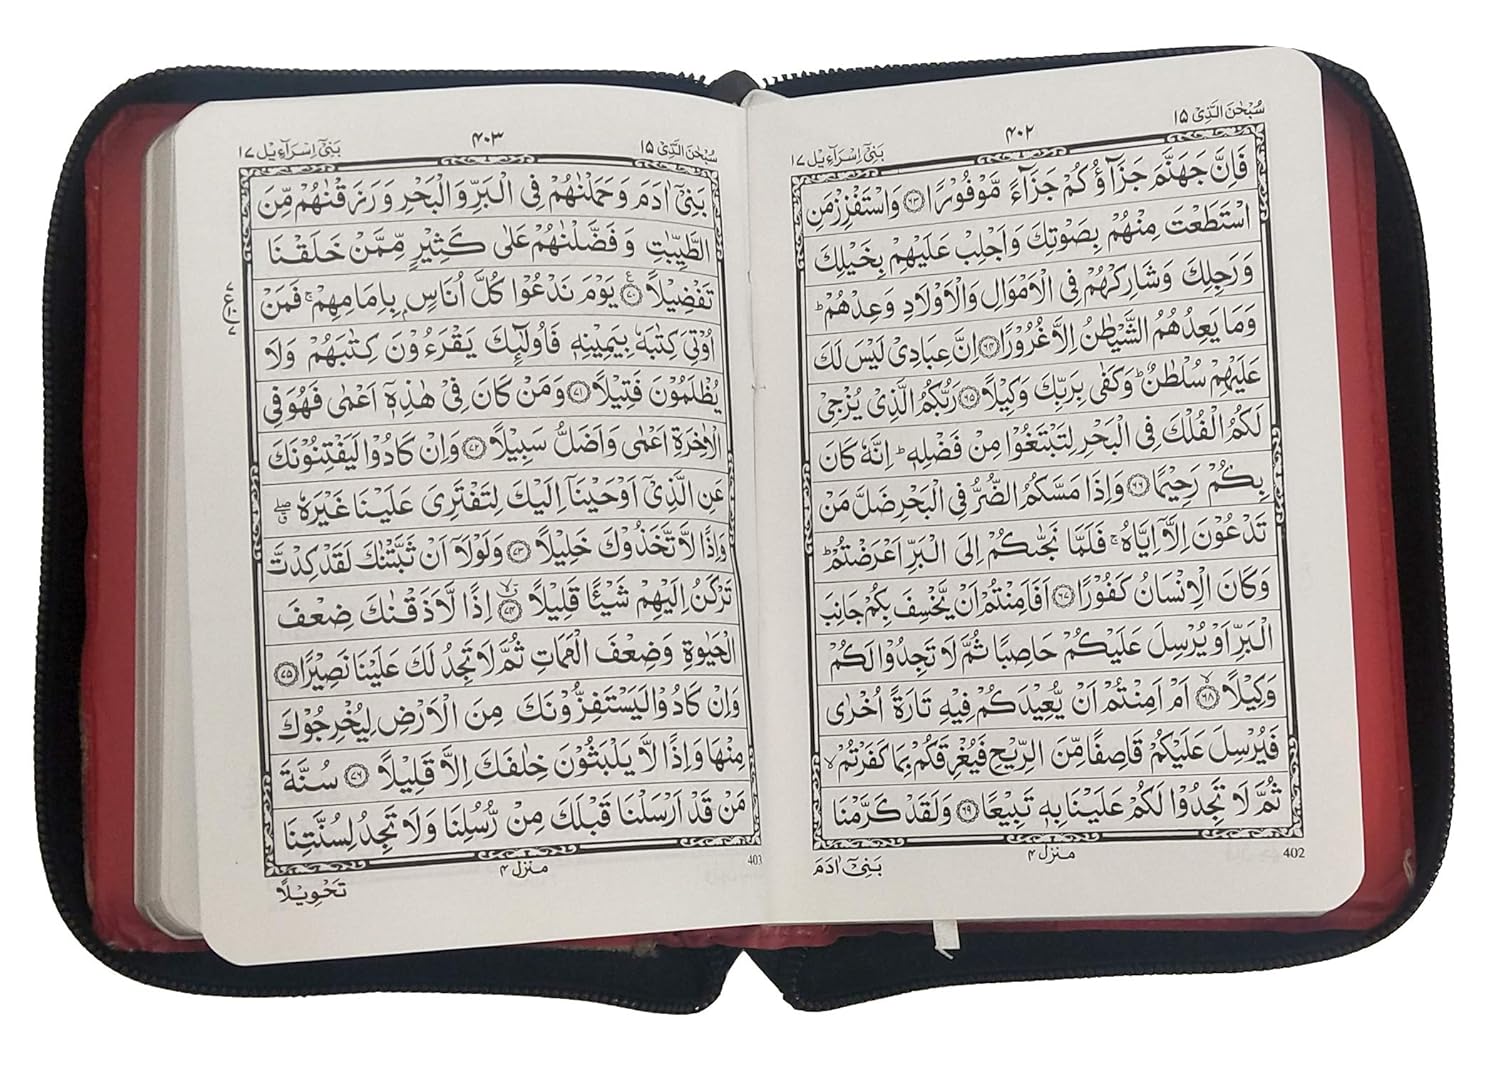 سُبْحٰنَ الَّذِیْۤ ۱۵
۴۰۲
بَنِیْۤ اِسْرَآءِیْل ۱۷
فَاِنَّ جَهَنَّمَ جَزَآؤُكُمْ جَزَآءً مَّوْفُوْرًا ۝۶۳ وَاسْتَفْزِزْ مَنِ
اسْتَطَعْتَ مِنْهُمْ بِصَوْتِكَ وَاَجْلِبْ عَلَيْهِمْ بِخَيْلِكَ
وَرَجِلِكَ وَشَارِكْهُمْ فِى الْاَمْوَالِ وَالْاَوْلَادِ وَعِدْهُمْ ؕ
وَمَا يَعِدُهُمُ الشَّيْطٰنُ اِلَّا غُرُوْرًا ۝۶۴ اِنَّ عِبَادِىْ لَيْسَ لَكَ
عَلَيْهِمْ سُلْطٰنٌ ؕ وَكَفٰى بِرَبِّكَ وَكِيْلًا ۝۶۵ رَبُّكُمُ الَّذِىْ يُزْجِىْ
لَكُمُ الْفُلْكَ فِى الْبَحْرِ لِتَبْتَغُوْا مِنْ فَضْلِهٖ ؕ اِنَّهٗ كَانَ
بِكُمْ رَحِيْمًا ۝۶۶ وَاِذَا مَسَّكُمُ الضُّرُّ فِى الْبَحْرِ ضَلَّ مَنْ
تَدْعُوْنَ اِلَّاۤ اِيَّاهُ ۚ فَلَمَّا نَجّٰىكُمْ اِلَى الْبَرِّ اَعْرَضْتُمْ ؕ
وَكَانَ الْاِنْسَانُ كَفُوْرًا ۝۶۷ اَفَاَمِنْتُمْ اَنْ يَّخْسِفَ بِكُمْ جَانِبَ
الْبَرِّ اَوْ يُرْسِلَ عَلَيْكُمْ حَاصِبًا ثُمَّ لَا تَجِدُوْا لَكُمْ
وَكِيْلًا ۙ۝۶۸ اَمْ اَمِنْتُمْ اَنْ يُّعِيْدَكُمْ فِيْهِ تَارَةً اُخْرٰى
فَيُرْسِلَ عَلَيْكُمْ قَاصِفًا مِّنَ الرِّيْحِ فَيُغْرِقَكُمْ بِمَا كَفَرْتُمْ ۙ
ثُمَّ لَا تَجِدُوْا لَكُمْ عَلَيْنَا بِهٖ تَبِيْعًا ۝۶۹ وَلَقَدْ كَرَّمْنَا
402
منزل ۴
بَنِیْۤ اٰدَمَ
سُبْحٰنَ الَّذِیْۤ ۱۵
۴۰۳
بَنِیْۤ اِسْرَآءِیْل ۱۷
بَنِىْۤ اٰدَمَ وَحَمَلْنٰهُمْ فِى الْبَرِّ وَالْبَحْرِ وَرَزَقْنٰهُمْ مِّنَ
الطَّيِّبٰتِ وَفَضَّلْنٰهُمْ عَلٰى كَثِيْرٍ مِّمَّنْ خَلَقْنَا
تَفْضِيْلًا ۝۷۰ يَوْمَ نَدْعُوْا كُلَّ اُنَاسٍۭ بِاِمَامِهِمْ ۚ فَمَنْ
اُوْتِىَ كِتٰبَهٗ بِيَمِيْنِهٖ فَاُولٰٓئِكَ يَقْرَءُوْنَ كِتٰبَهُمْ وَلَا
يُظْلَمُوْنَ فَتِيْلًا ۝۷۱ وَمَنْ كَانَ فِىْ هٰذِهٖۤ اَعْمٰى فَهُوَ فِى
الْاٰخِرَةِ اَعْمٰى وَاَضَلُّ سَبِيْلًا ۝۷۲ وَاِنْ كَادُوْا لَيَفْتِنُوْنَكَ
عَنِ الَّذِىْۤ اَوْحَيْنَاۤ اِلَيْكَ لِتَفْتَرِىَ عَلَيْنَا غَيْرَهٗ ۖق
وَاِذًا لَّاتَّخَذُوْكَ خَلِيْلًا ۝۷۳ وَلَوْلَاۤ اَنْ ثَبَّتْنٰكَ لَقَدْ كِدْتَّ
تَرْكَنُ اِلَيْهِمْ شَيْئًا قَلِيْلًا ۝۷۴ اِذًا لَّاَذَقْنٰكَ ضِعْفَ
الْحَيٰوةِ وَضِعْفَ الْمَمَاتِ ثُمَّ لَا تَجِدُ لَكَ عَلَيْنَا نَصِيْرًا ۝۷۵
وَاِنْ كَادُوْا لَيَسْتَفِزُّوْنَكَ مِنَ الْاَرْضِ لِيُخْرِجُوْكَ
مِنْهَا وَاِذًا لَّا يَلْبَثُوْنَ خِلٰفَكَ اِلَّا قَلِيْلًا ۝۷۶ سُنَّةَ
مَنْ قَدْ اَرْسَلْنَا قَبْلَكَ مِنْ رُّسُلِنَا وَلَا تَجِدُ لِسُنَّتِنَا
403
منزل ۴
تَحْوِيْلًا